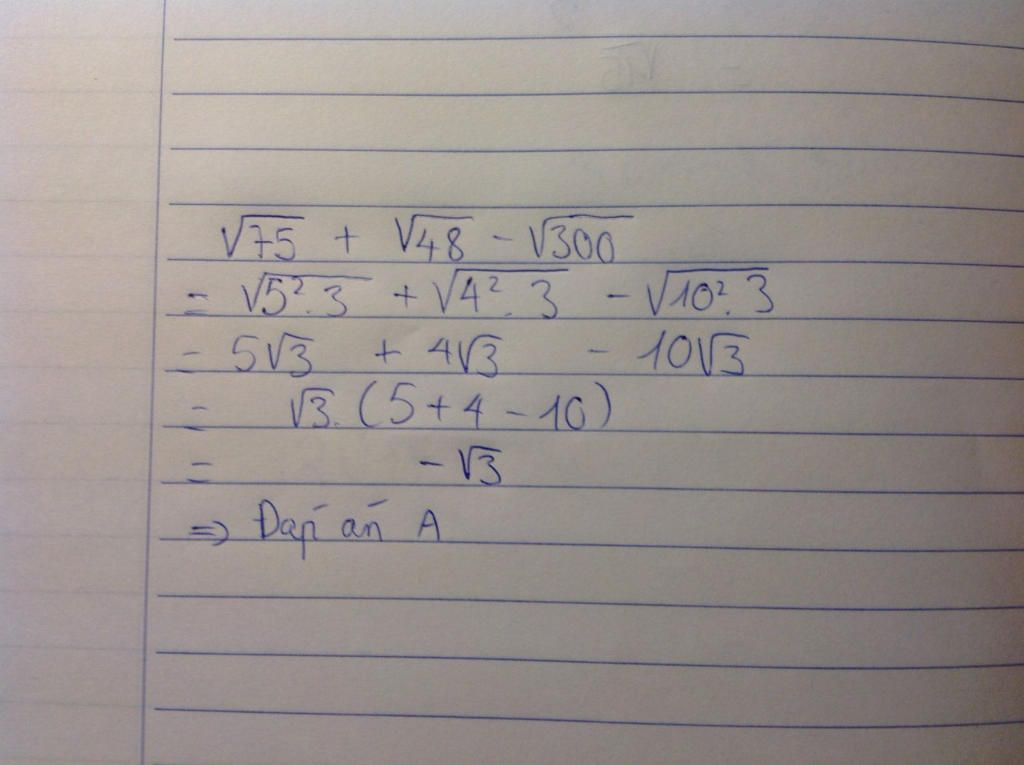 √75 + √48 - √300
= √5².3 + √4².3 - √10².3
= 5√3 + 4√3 - 10√3
= √3.(5+4-10)
= -√3
=> Đáp án A